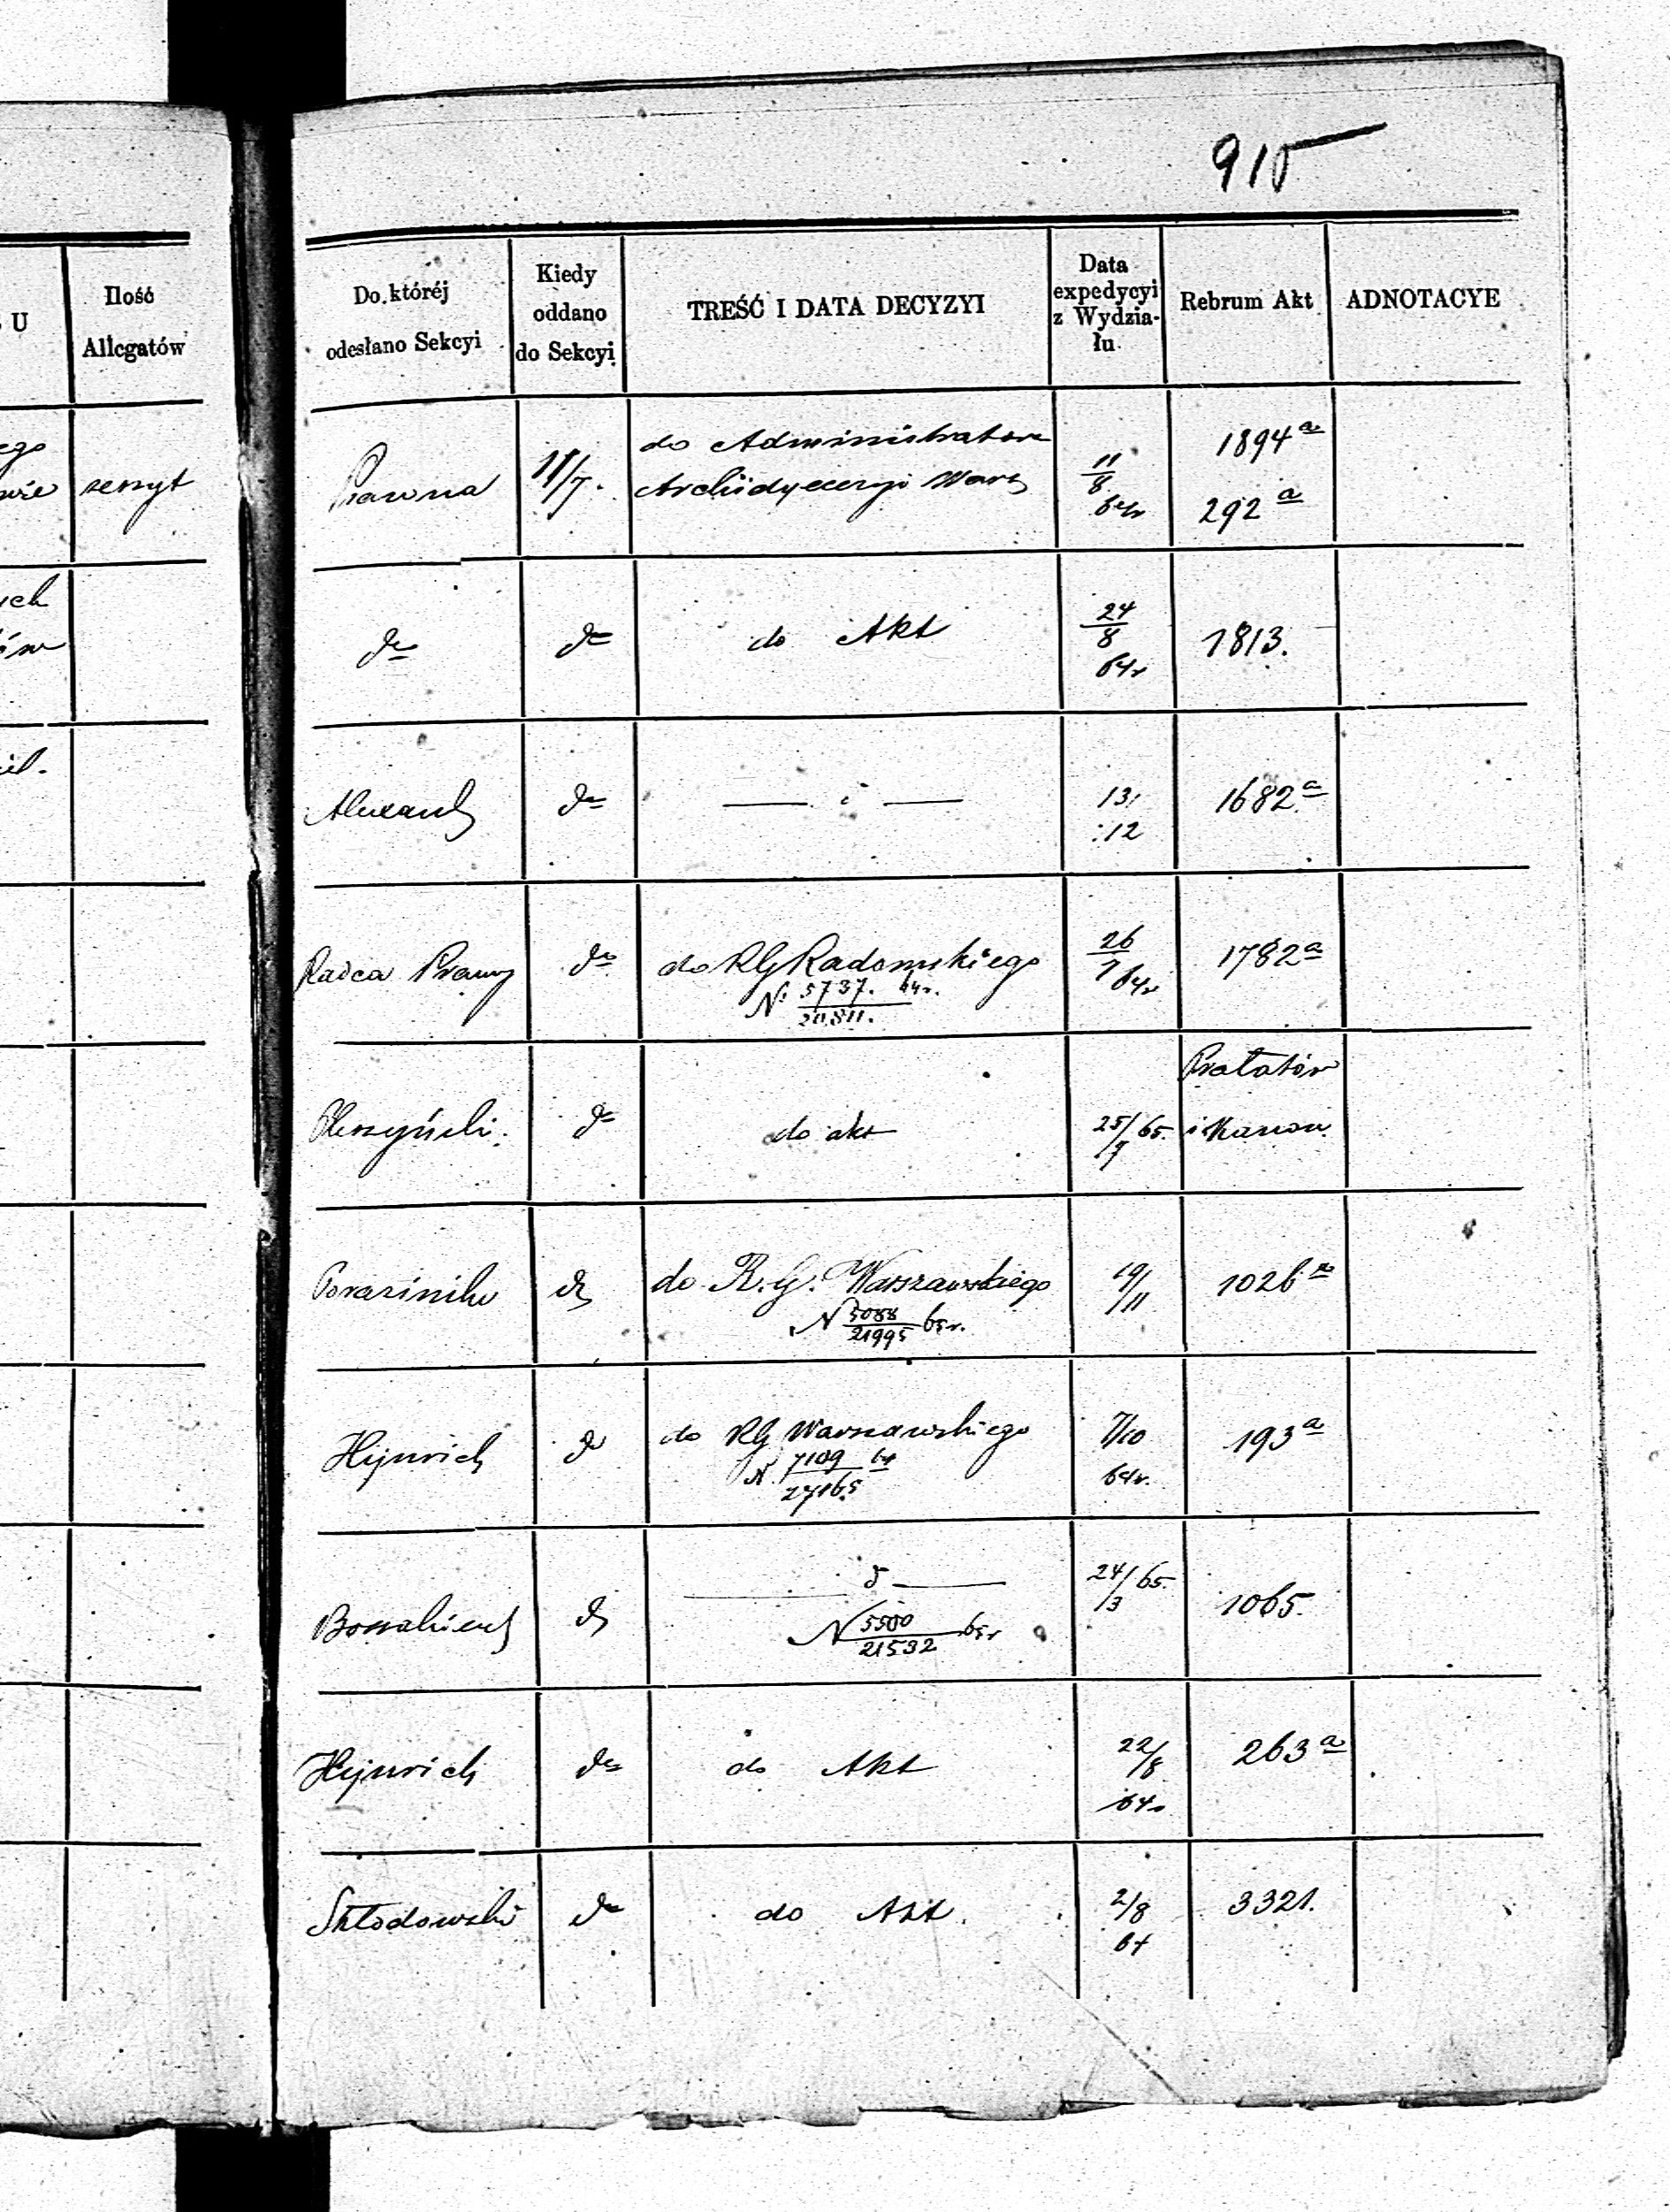 915
U
Ilość
Allegatów
Do któréj
odesłano Sekcyi
Kiedy
oddano
do Sekcyi
TREŚĆ I DATA DECYZYI
Data
expedycyi
z Wydzia-
łu
Rebrum Akt
ADNOTACYE
ego
zeszyt
Prawna
11/7.
do Administratora
Archidyecezyi Warsz
11
8
64r
1894 a
292 a
ych
do
do
do Akt
24
8
64r
1813.
Alexand
do
13
12
1682 a
Radca Prawny
do
do RG Radomskiego
N: 5737. 64r.
20811.
26
7 64r
1782 a
do
do akt
25/7 65.
Prałatów
i Kanon.
do
do R. G. Warszawskiego
N 5088
21995 65r.
19/11
1026 a
Hejnrich
do
do RG Warszawskiego
N. 7109 64
27165
7/10
64r.
193 a
do
N 5500
21532 65r
24/3 65.
1065.
Hejnrich
do
do Akt
22/8
64r
263 a
Skłodowski
do
do Akt.
2/8
64
3321.